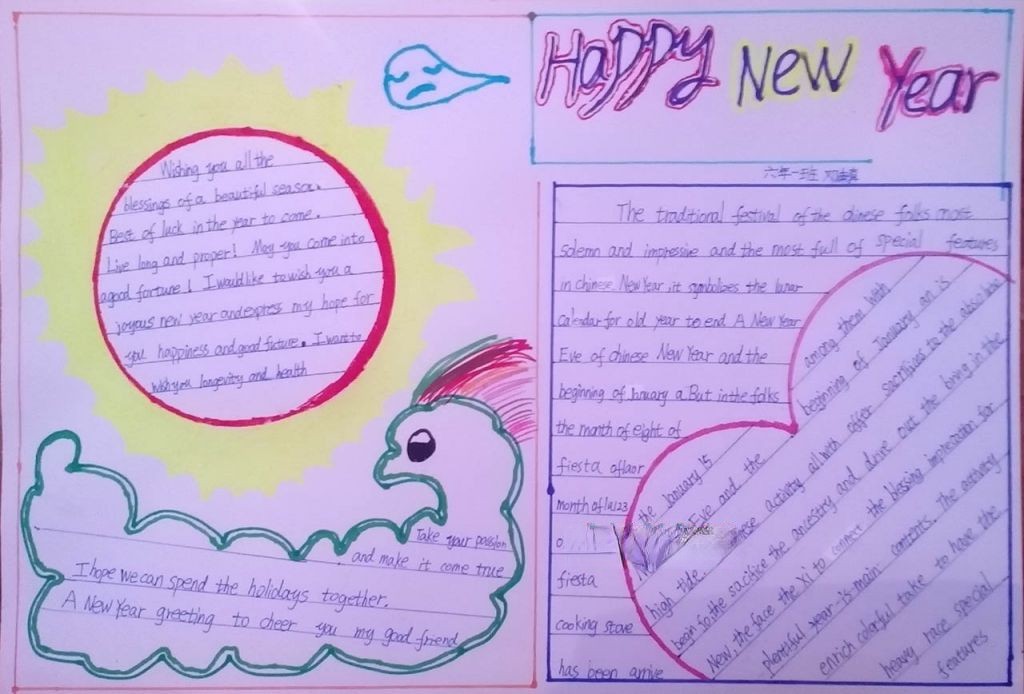 Happy New Year
六年一班
Wishing you all the
blessings of a beautiful season.
Best of luck in the year to come.
Live long and proper! May you come into
a good fortune! I would like to wish you a
joyous new year and express my hope for
you happiness and good future. I want to
wish you longevity and health
Take your passion
and make it come true
I hope we can spend the holidays together.
A New Year greeting to cheer you my good friend
The traditional festival of the chinese folks most
solemn and impressive and the most full of special features
in chinese New Year, it symbolizes the lunar
calendar for old year to end A New Year
Eve of chinese New Year and the
beginning of January a But in the folks
the month of eight of
fiesta of
month of
o.
fiesta
cooking stove
has been arrive
among them with
beginning of January an is
the January 15 sacrificed to the also
Eve and the activity all with offer bring in the
high tide. these ancestry and drive out the
begin fo the sacrifice the the blessing imprecation for
New, the face the Xi to connect contents. The activity
plentiful year is main
enrich colorful take to have the
heavy race special
features